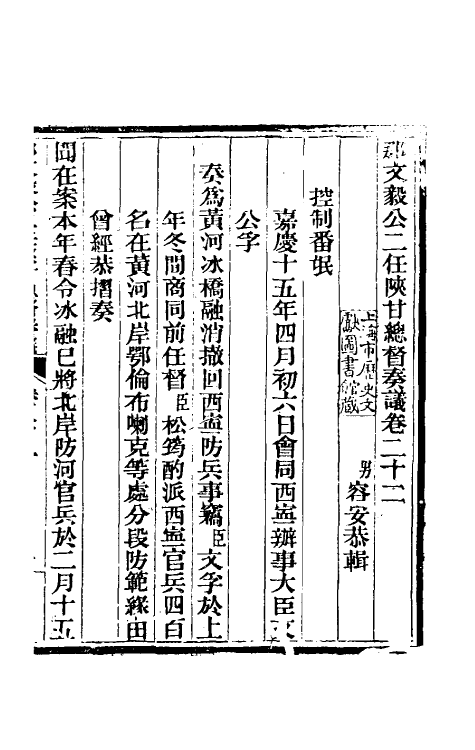 那文毅公二任陝甘總督奏議卷二十二
男容安恭輯
上海市歷史文
獻圖書館藏
控制番氓
嘉慶十五年四月初六日會同西寧辦事大臣文
公孚
奏為黃河冰橋融消撤回西寧防兵事竊臣文孚於上
年冬間商同前任督臣松筠酌派西寧官兵四百
名在黃河北岸鄂倫布喇克等處分段防範緣由
曾經恭摺奏
聞在案本年春令冰融已將北岸防河官兵於二月十五